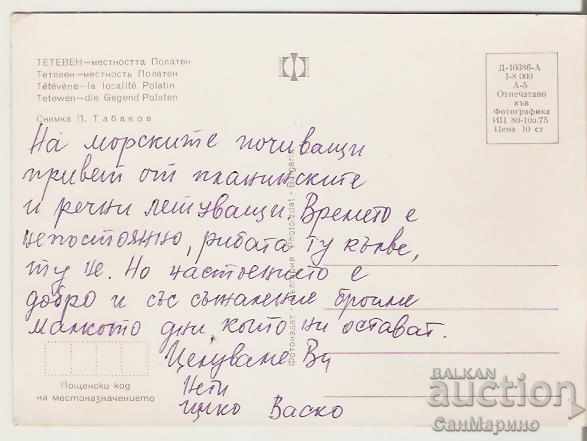 ТЕТЕВЕН—местността Полатен
Тетевен—местность Полатен
Tétévène—la localité Polatin
Tetewen—die Gegend Polaten
Снимка П. Табаков
Д-10386-А
I-8 000
А-5
Отпечатано
във
Фотографика
ИЦ 80-100.75
Цена 10 ст
На морските почиващи
привет от планинските
и речни летуващи Времето е
непостоянно, рибата ту кълве,
ту не. Но настоението е
добро и със съжаление броиме
малкото дни, които ни остават.
Целуваме Ви
Нети
Цеко Васко
Пощенски код
на местоназначението
BALKAN
auction
СанМарино